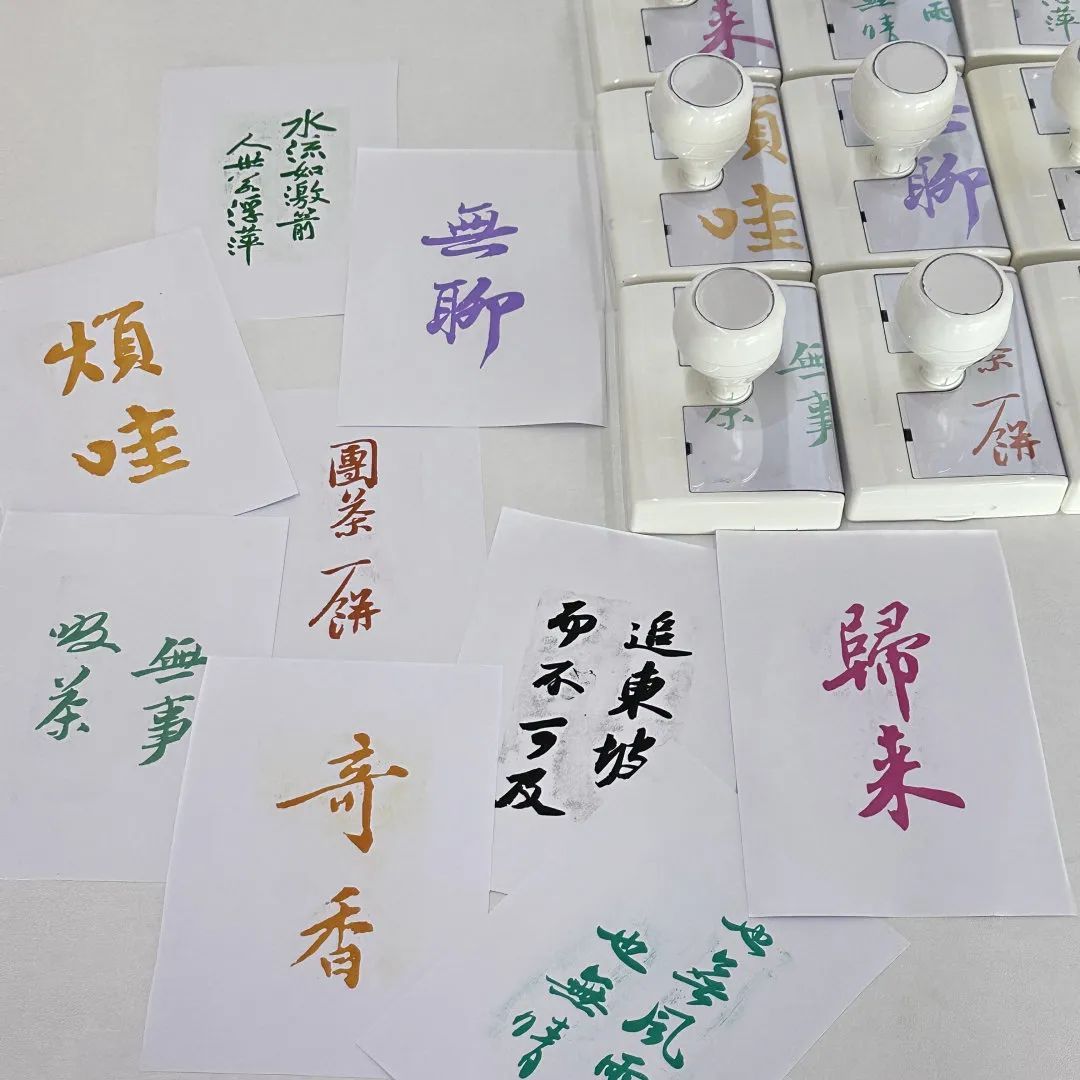 水流如激箭
人世若浮萍
無聊
煩
哇
團茶一餅
無事
吸茶
追東坡
而不可及
歸来
奇香
也無風雨
也無晴
来
無晴
雨
煩
哇
聊
無事
茶
茶一餅